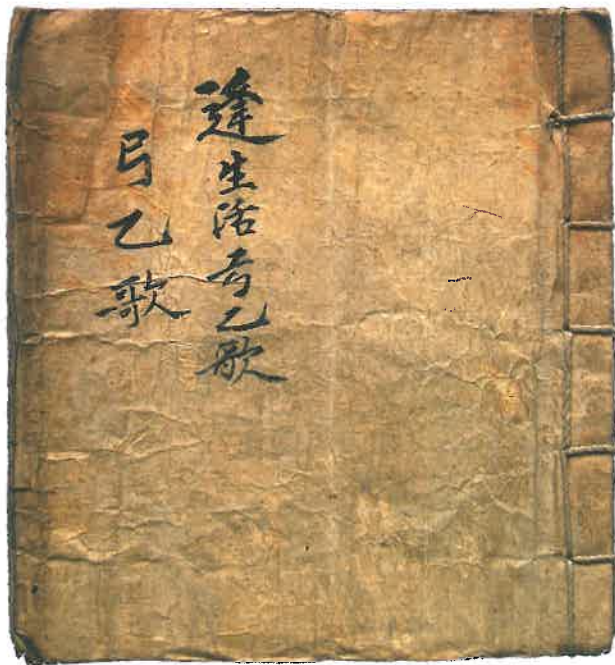 逢生活弓乙歌
弓乙歌